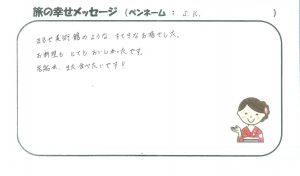 旅の幸せメッセージ (ペンネーム : J.K. )
まるで美術館のような、すてきなお宿でした。
お料理も とても おいしかったです。
また食べたいです!!